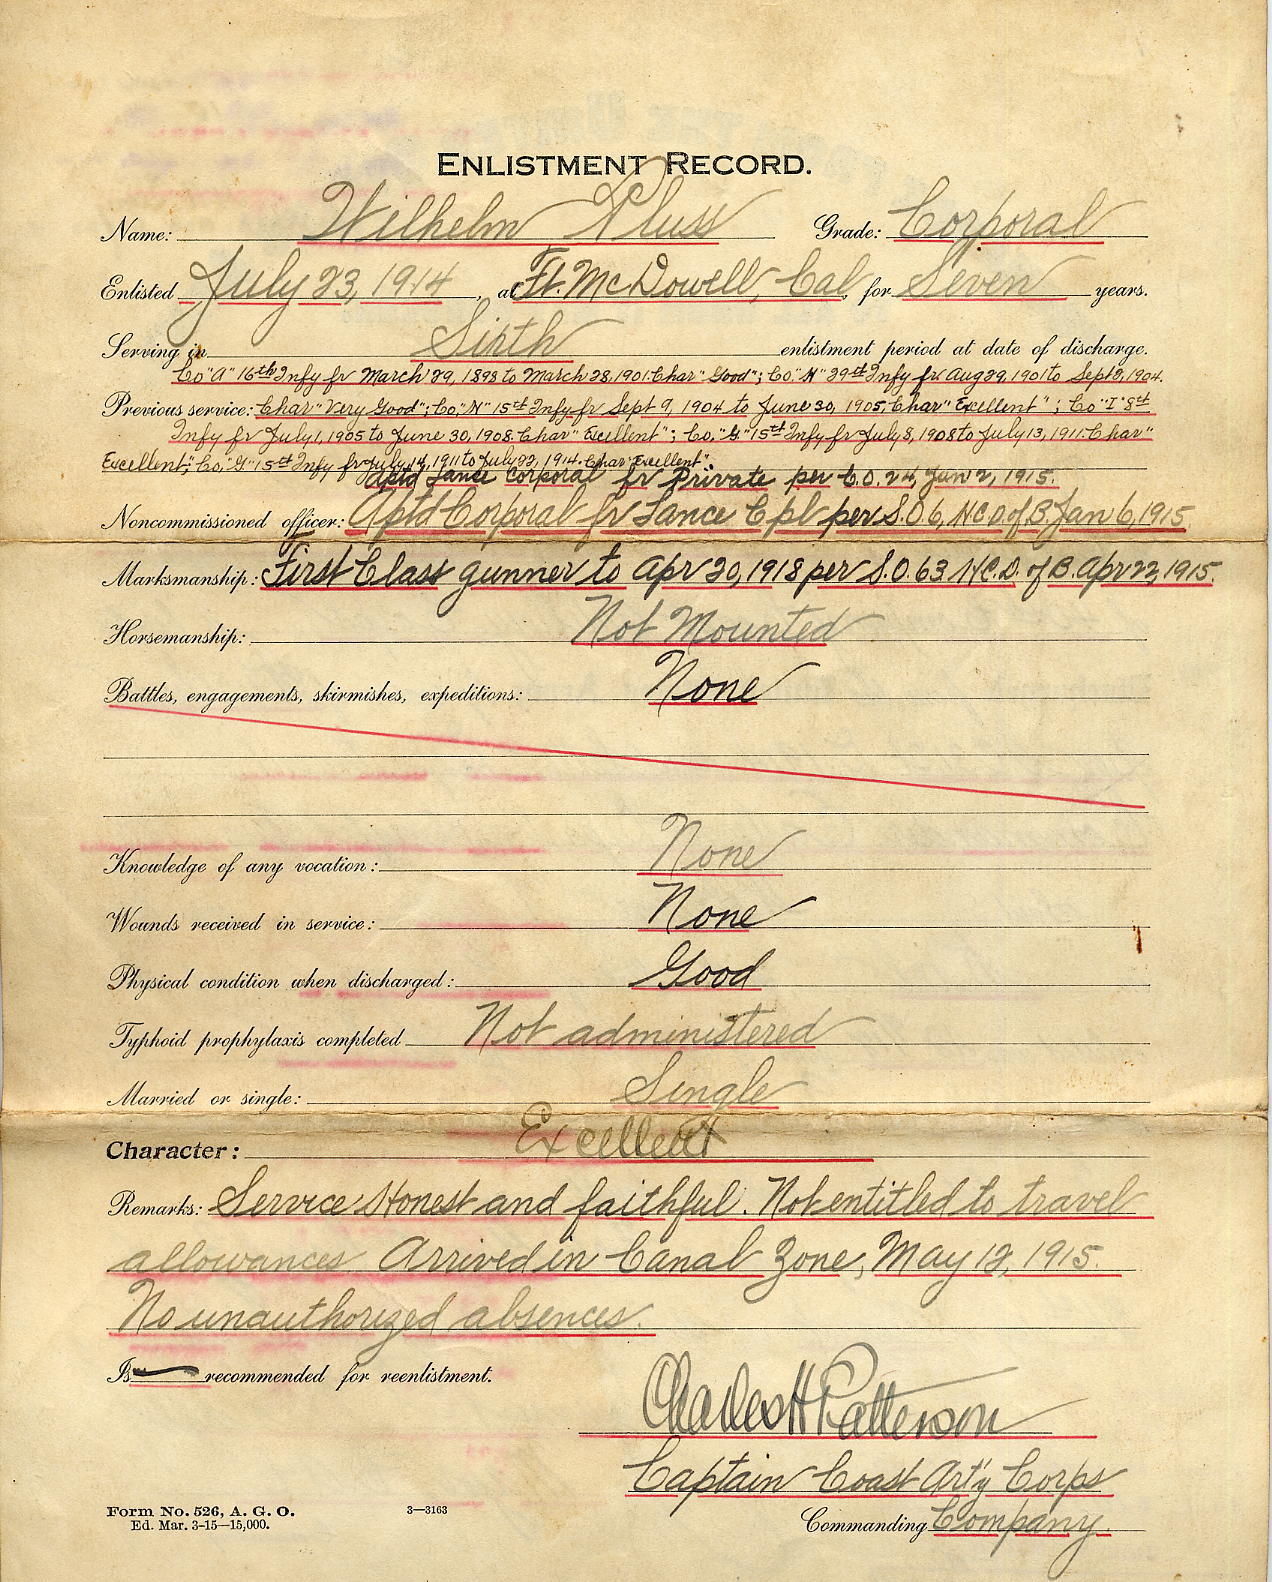 ENLISTMENT RECORD.
Name: Wilhelm Pluss Grade: Corporal
Enlisted July 23, 1914, at Ft. McDowell, Cal, for Seven years.
Serving in Sixth enlistment period at date of discharge.
Co "A" 16th Infy fr March 29, 1898 to March 28, 1901. Char "Good"; Co. "M" 29th Infy fr Aug 29, 1901 to Sept 8, 1904.
Previous service: Char "Very Good"; Co, "M" 15th Infy fr Sept 9, 1904 to June 30, 1905, Char "Excellent"; Co "I" 8th
Infy fr July 1, 1905 to June 30, 1908. Char "Excellent"; Co, "G." 15th Infy fr July 8, 1908 to July 13, 1911. Char"
Excellent"; Co, "G" 15th Infy fr July 14, 1911 to July 22, 1914. Char "Excellent".
aptd Lance Corporal fr Private per C.O. 24, Jun 2, 1915.
Noncommissioned officer: Aptd Corporal fr Lance Cpl per S.O 6, N C D of B Jan 6, 1915
Marksmanship: First Class gunner to Apr 20, 1918 per S.O. 63 N.C.D. of B. Apr 22, 1915.
Horsemanship: Not Mounted
Battles, engagements, skirmishes, expeditions: None
Knowledge of any vocation: None
Wounds received in service: None
Physical condition when discharged: Good
Typhoid prophylaxis completed Not administered
Married or single: Single
Character: Excellent
Remarks: Service Honest and faithful. Not entitled to travel
allowances Arrived in Canal Zone, May 12, 1915.
No unauthorized absences.
Is recommended for reenlistment.
Charles H Patterson
Captain Coast Art'y Corps
Form No. 526, A. G. O. 3—3163
Ed. Mar. 3-15—15,000.
Commanding Company.